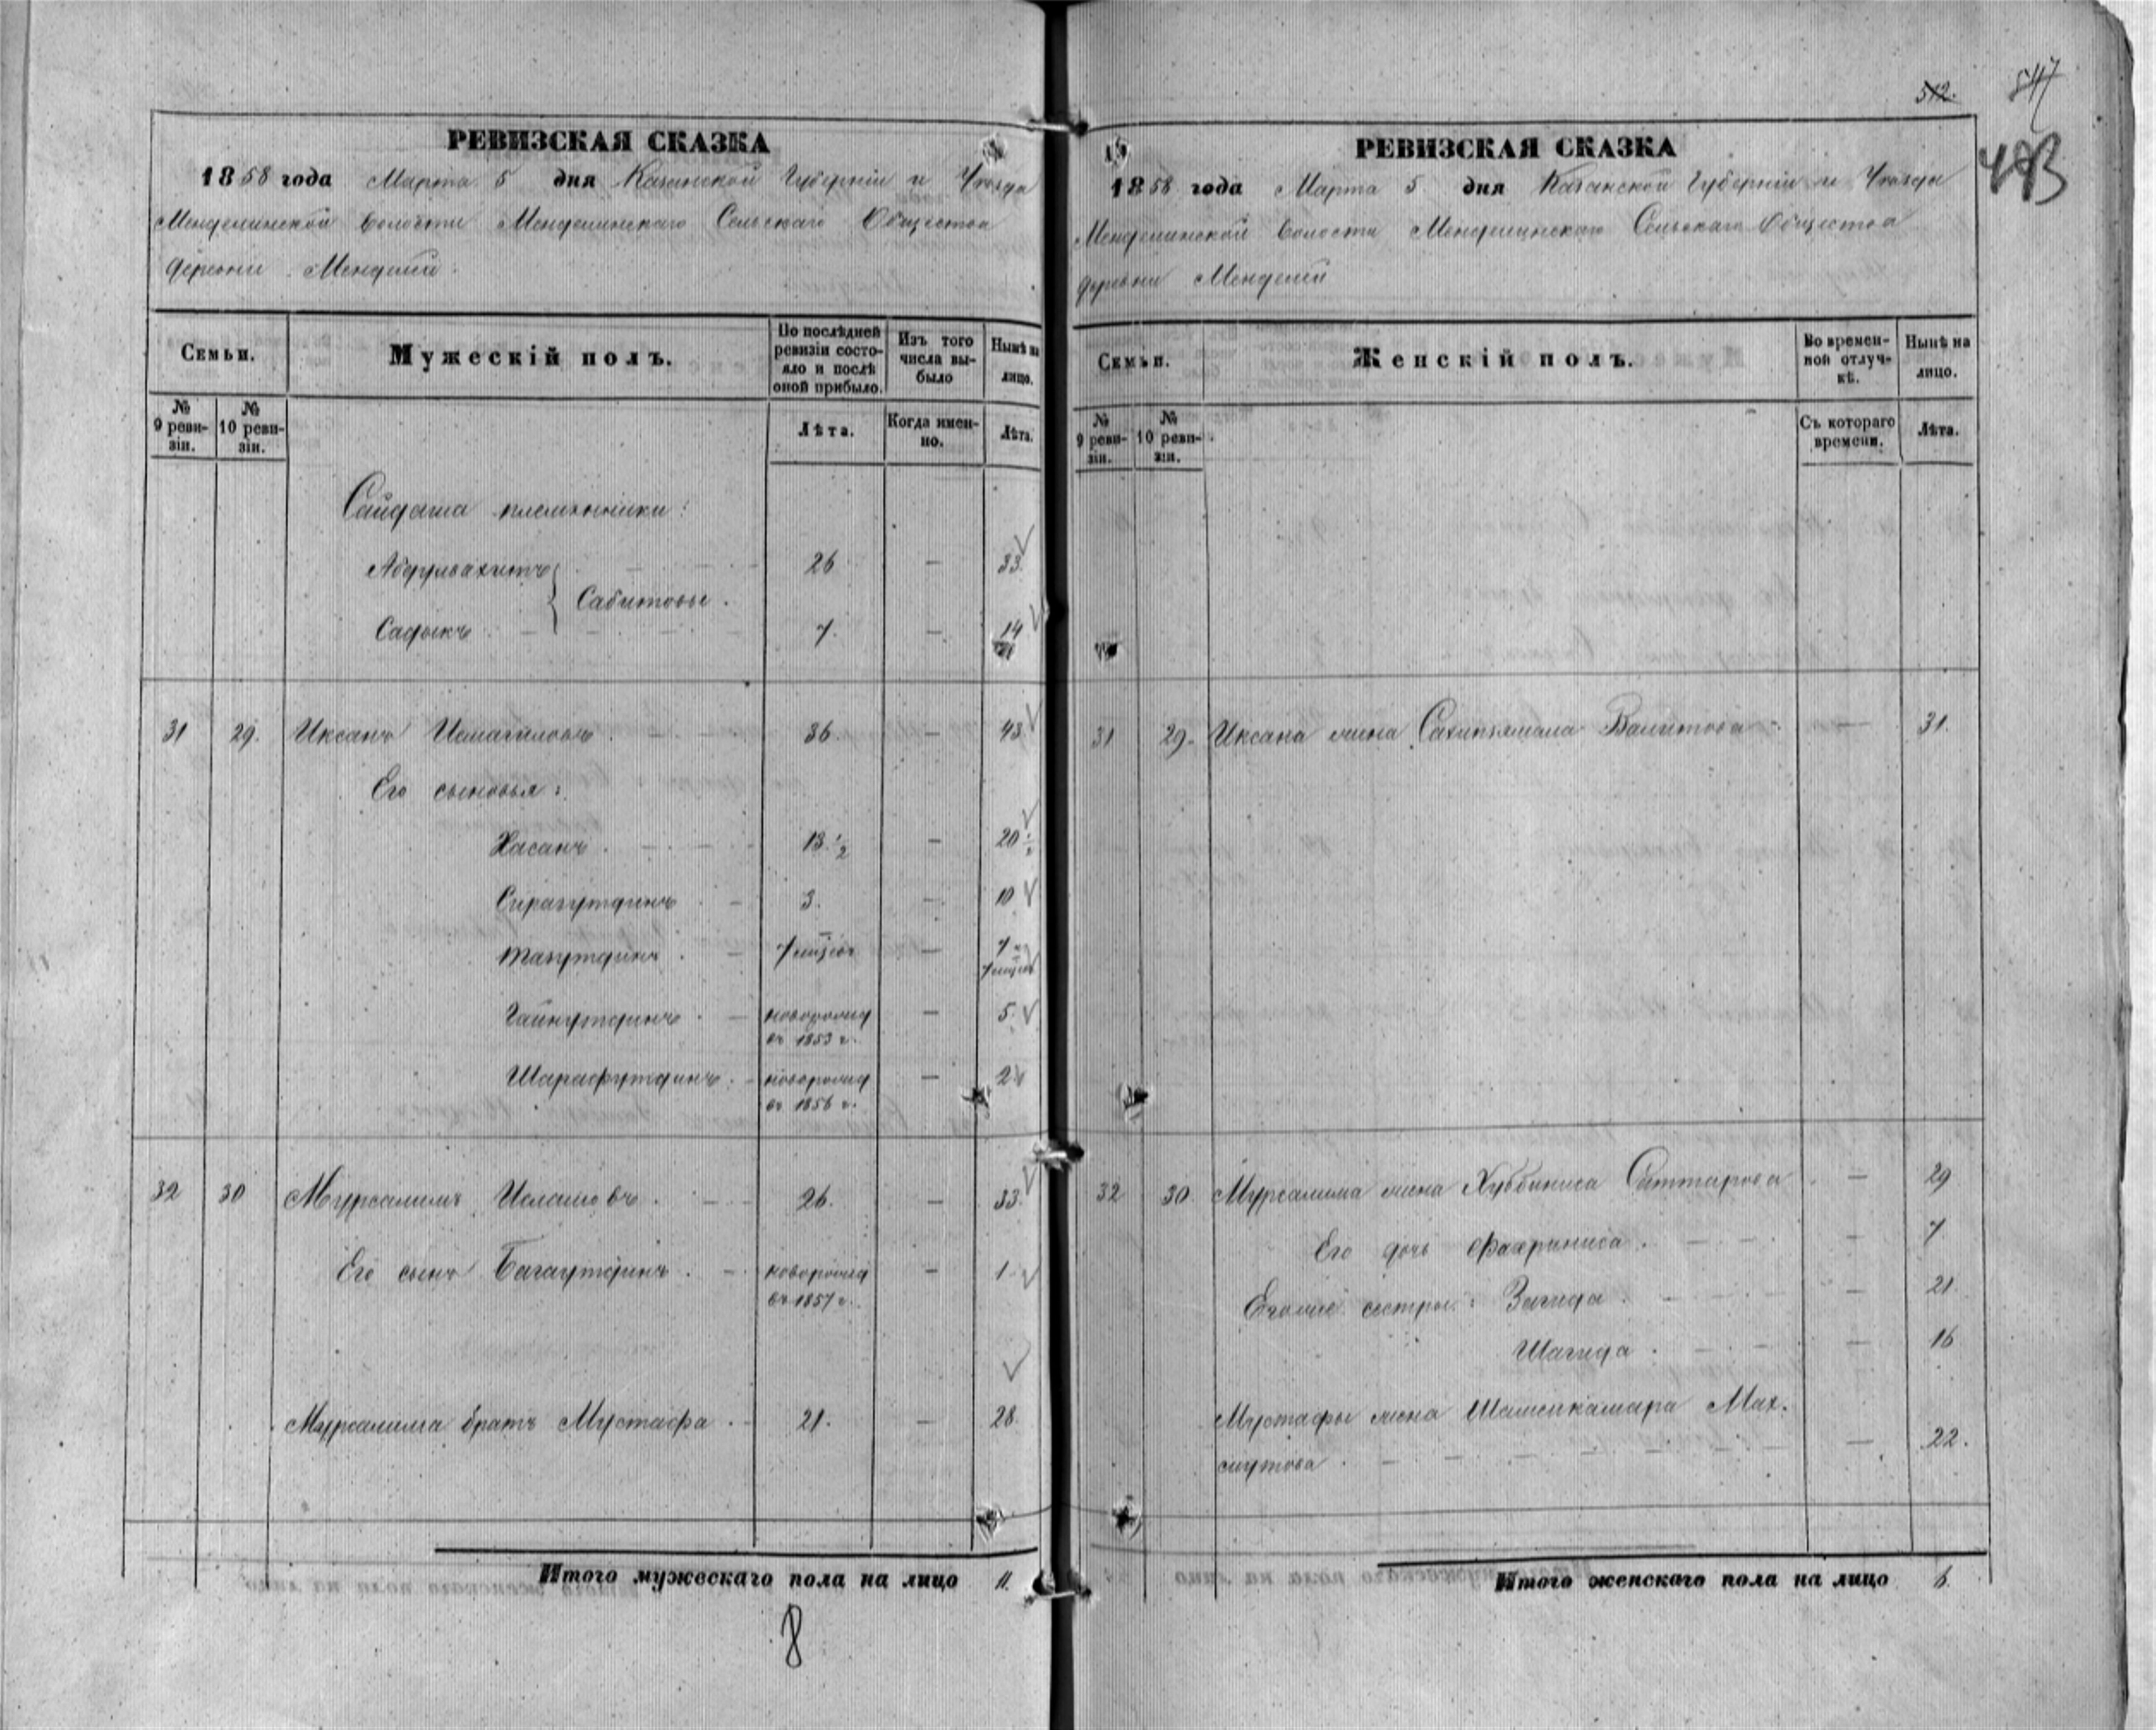 512.
547
493
РЕВИЗСКАЯ СКАЗКА
1858 года Марта 5 дня Казанской Губерніи и Уѣзда
Менделинской волости Менделинскаго Сельскаго Общества
деревни Мендели
Семьи.
Мужескій полъ.
По послѣдней ревизіи состояло и послѣ оной прибыло.
Изъ того числа выбыло
Нынѣ на лицо.
№ 9 ревизіи.
№ 10 ревизіи.
Лѣта.
Когда именно.
Лѣта.
Сайдаша племянники:
Абдулвахитъ — 26 — 33
Сабитовы.
Садыкъ — 7. — 14
31 29. Иксанъ Исмагиловъ — 36. — 43
Его сыновья:
Хасанъ — 13 1/2 — 20 1/2
Сиразутдинъ — 3. — 10
Тазутдинъ — 7 мѣсяц — 7 и
7 мѣсяц
Гайнутдинъ — новорожд — 5.
въ 1853 г.
Шарафутдинъ — новорожд — 2
въ 1856 г.
32 30 Мурсалимъ Исламовъ — 26. — 33.
Его сынъ Багаутдинъ — новорожд — 1
въ 1857 г.
Мурсалима братъ Мустафа — 21. — 28.
Итого мужескаго пола на лицо 11.
8
РЕВИЗСКАЯ СКАЗКА
1858 года Марта 5 дня Казанской Губерніи и Уѣзда
Менделинской волости Менделинскаго Сельскаго Общества
деревни Мендели
Семьи.
Женскій полъ.
Во временной отлучкѣ.
Нынѣ на лицо.
№ 9 ревизіи.
№ 10 ревизіи.
Съ котораго времени.
Лѣта.
31 29. Иксана жена Сахипзямала Валитова — 31.
32 30. Мурсалима жена Хуббиниса Саттарова — 29
Его дочь Фахриниса — 7
Егоже сестры: Загида — 21.
Шагида — 16
Мустафы жена Шамсикамара Мах-
мутова — 22.
Итого женскаго пола на лицо 6.